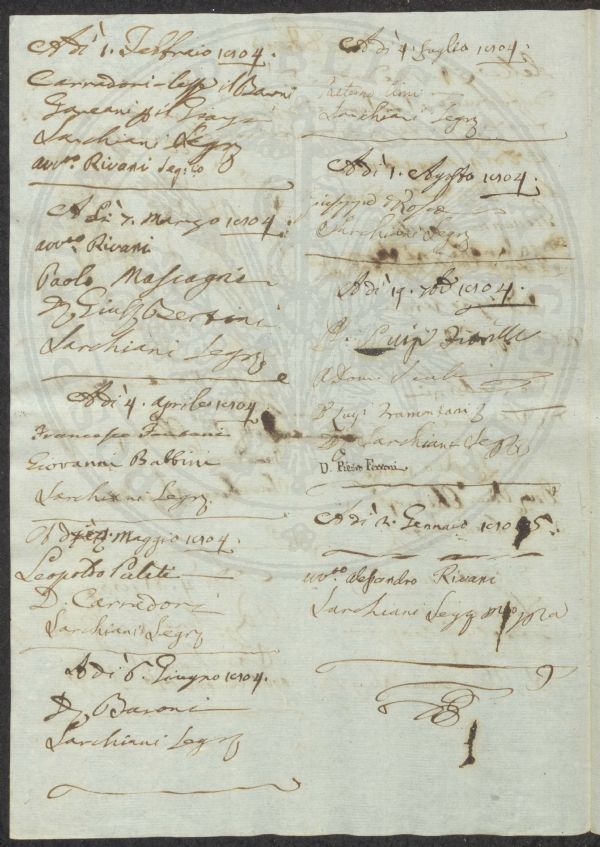 A dì 1. Febbraio 1804.
Carradori - Lessi il Baroni
Larchiani Segr.
avv.to Rivani Seg.rio
A Dì 7. Marzo 1804.
avv.to Rivani
Paolo Mascagni
D. Giusep. Bertini
Larchiani Segr.
A dì 4. aprile 1804
Francesco
Giovanni Babbini
Larchiani Segr.
A dì Maggio 1804.
Leopoldo
D. Carradori
Larchiani Segr.
A dì 6. Giugno 1804.
D. Baroni
Larchiani Segr.
A dì 4. Luglio 1804.
Gaetano
Larchiani Segr.
A dì 1. Agosto 1804.
Giuseppe
Larchiani Segr.
A dì 19. 1804.
Luigi
Adamo
D. Luigi Tramontani
Larchiani Segr.
D. Pietro Ferroni
A dì 2. Gennaio 1805.
avv.to Alessandro Rivani
Larchiani Segr.